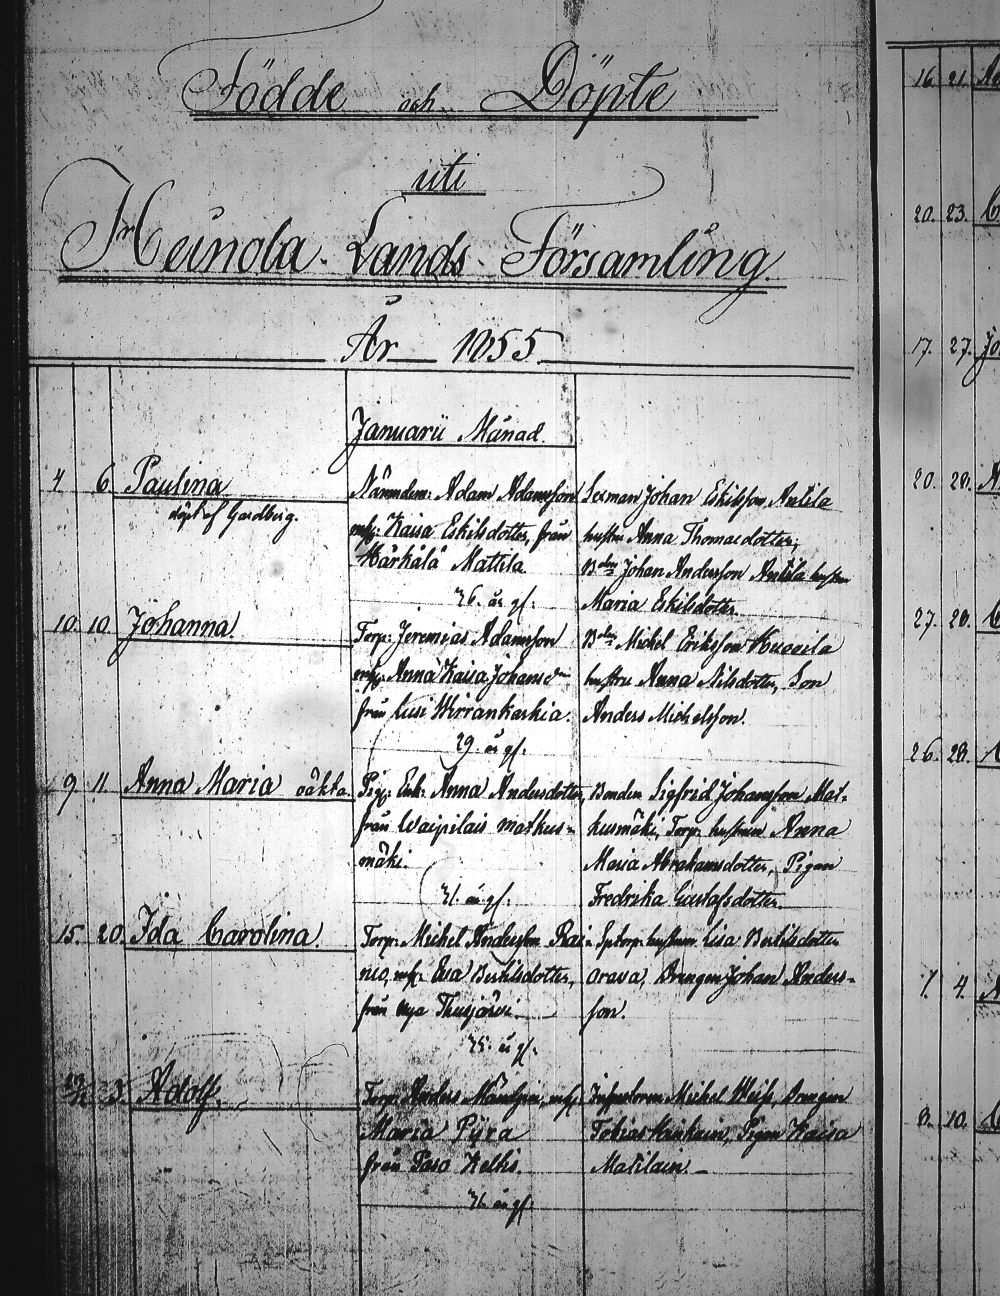 Födde och Döpte
uti
Heinola Lands Församling.
År 1855
Januarii Månad.
4 6 Paulina
döpt af Gardberg.
Nämndem: Adam Adamsson
Kaisa Eskilsdotter, från
Härkälä Mattila
36. år gl:
Sexman Johan Eskilsson Anttila
hustru Anna Thomasdotter,
Johan Andersson Anttila hustru
Maria Eskilsdotter
10. 10. Johanna.
Torp: Jeremias Adamsson
Anna Kaisa Johansd
från Lusi Wirrankoskia.
29. år gl.
Michel Eriksson
hustru Anna Nilsdotter, Son
Anders Michelsson.
9. 11. Anna Maria oäkta
Pig: Enk: Anna Andersdotter,
från Waipilais markus-
mäki.
31. år gl:
Bonden Sigfrid Johansson Mar-
kusmäki, Torp: hustrun Anna
Maria Abrahamsdotter, Pigan
Fredrika Gustafsdotter.
15. 20. Ida Carolina.
Torp: Michel Andersson Rai-
nio, Eva Bertilsdotter,
från nya Thusjärvi
35. år gl:
hustrun Lisa Bertilsdotter
Orava, Drängen Johan Anders-
son.
29/12 3. Adolf.
Torp: Anders
Maria Pyra
från Paso
36. år gl:
Inspectoren Michel Weiss, Drängen
Tobias Heinkain, Pigan Kaisa
Matilain.
16 21.
20. 23.
17. 27. Jo
20. 28.
27. 28.
26. 28.
7. 4.
8. 10.